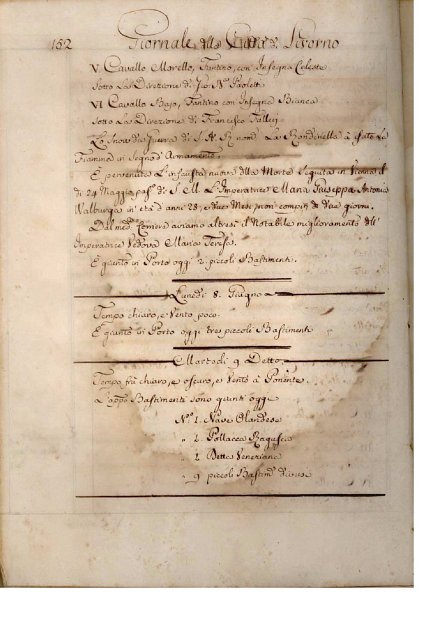 152 Giornale della Città di Livorno
V. Cavallo Morello, Fantino, con Insegna Celeste
sotto La Direzione di Paoletti
VI Cavallo Bajo, Fantino con Insegna Bianca
sotto La Direzione di Francesco
La di S. A. R. nom. La Rondinella à
Fiamma in segno d'Armamento.
E pervenuta L'infausta nuova della Morte seguita in Vienna il
di 24 Maggio pas. di S. M. L'Imperatrice Maria Giuseppa Antonia
Walburga in età d'anni 28, e due Mesi non compiti di due giorni.
Dal med. Corriere aviamo altresì il Notabile miglioramento dell'
Imperatrice Vedova Maria Teresa.
E giunto in Porto oggi 2 piccoli Bastimenti.
Lunedì 8. Giugno
Tempo chiaro, e Vento poco.
E giunto in Porto oggi tre piccoli Bastimenti
Martedì 9 Detto.
Tempo frà chiaro, e oscuro, e Vento à Ponente.
Bastimenti sono giunti oggi
N.º 1. Nave Olandese
" 2 Pollacca Ragusea
" 2 Dette Veneziane
" 9 piccoli Bastim.